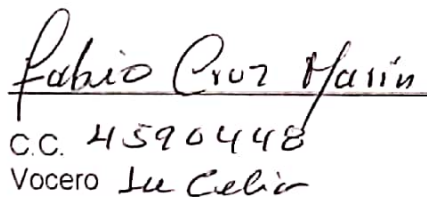 Fabio Cruz Marín
C.C. 4590448
Vocero La Celia